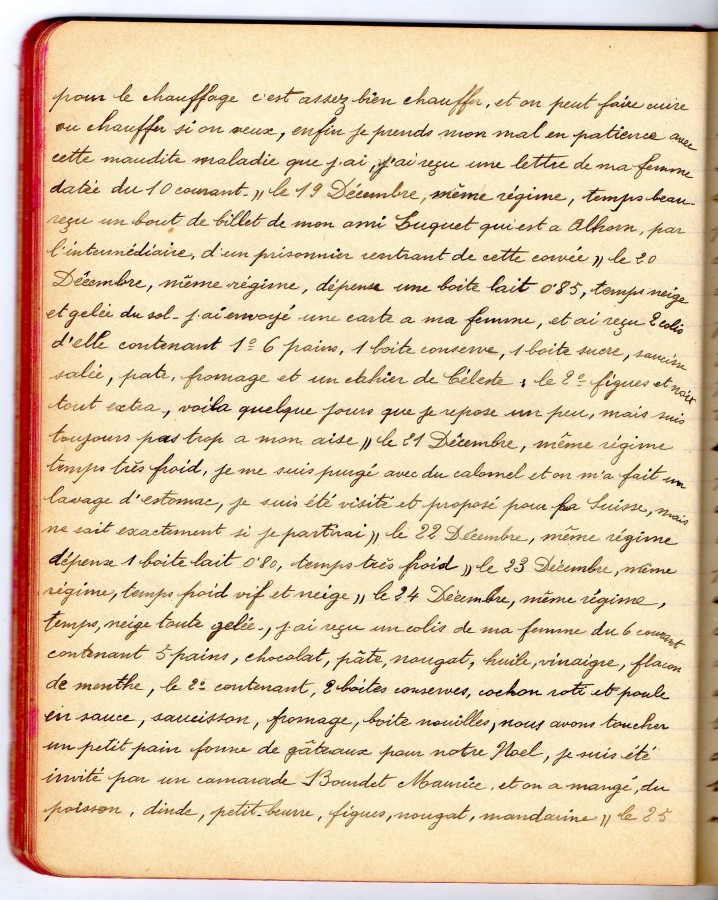 pour le chauffage c'est assez bien chauffer, et on peut faire cuire
ou chauffer si on veux, enfin je prends mon mal en patience avec
cette maudite maladie que j'ai, j'ai reçu une lettre de ma femme
datée du 10 courant- " le 19 Décembre, même régime, temps beau-
reçu un bout de billet de mon ami Luguet qui est a Alhorn, par
l'intermédiaire, d'un prisonnier rentrant de cette corvée " le 20
Décembre, même régime, dépense une boite lait 0.85, temps neige
et gelée du sol- j'ai envoyé une carte a ma femme, et ai reçu 2 colis
d'elle contenant 1º 6 pains, 1 boite conserve, 1 boite sucre, saucisse
salée, pate, fromage et un cahier de Céleste : le 2º figues et noix
tout extra, voila quelque jours que je repose un peu, mais suis
toujours pas trop a mon aise " le 21 Décembre, même régime
temps très froid, je me suis purgé avec du calomel et on m'a fait un
lavage d'estomac, je suis été visité et proposé pour la Suisse, mais
ne sait exactement si je partirai " le 22 Décembre, même régime
dépense 1 boite lait 0.80, temps très froid " le 23 Décembre, même
régime, temps froid vif et neige " le 24 Décembre, même régime,
temps, neige toute gelée, j'ai reçu un colis de ma femme du 6 courant
contenant 5 pains, chocolat, pâte, nougat, huile, vinaigre, flacon
de menthe, le 2º contenant, 2 boites conserves, cochon roti et poule
en sauce, saucisson, fromage, boite nouilles, nous avons toucher
un petit pain forme de gâteaux pour notre Noel, je suis été
invité par un camarade Bourdet Maurice, et on a mangé, du
poisson, dinde, petit-beurre, figues, nougat, mandarine " le 25